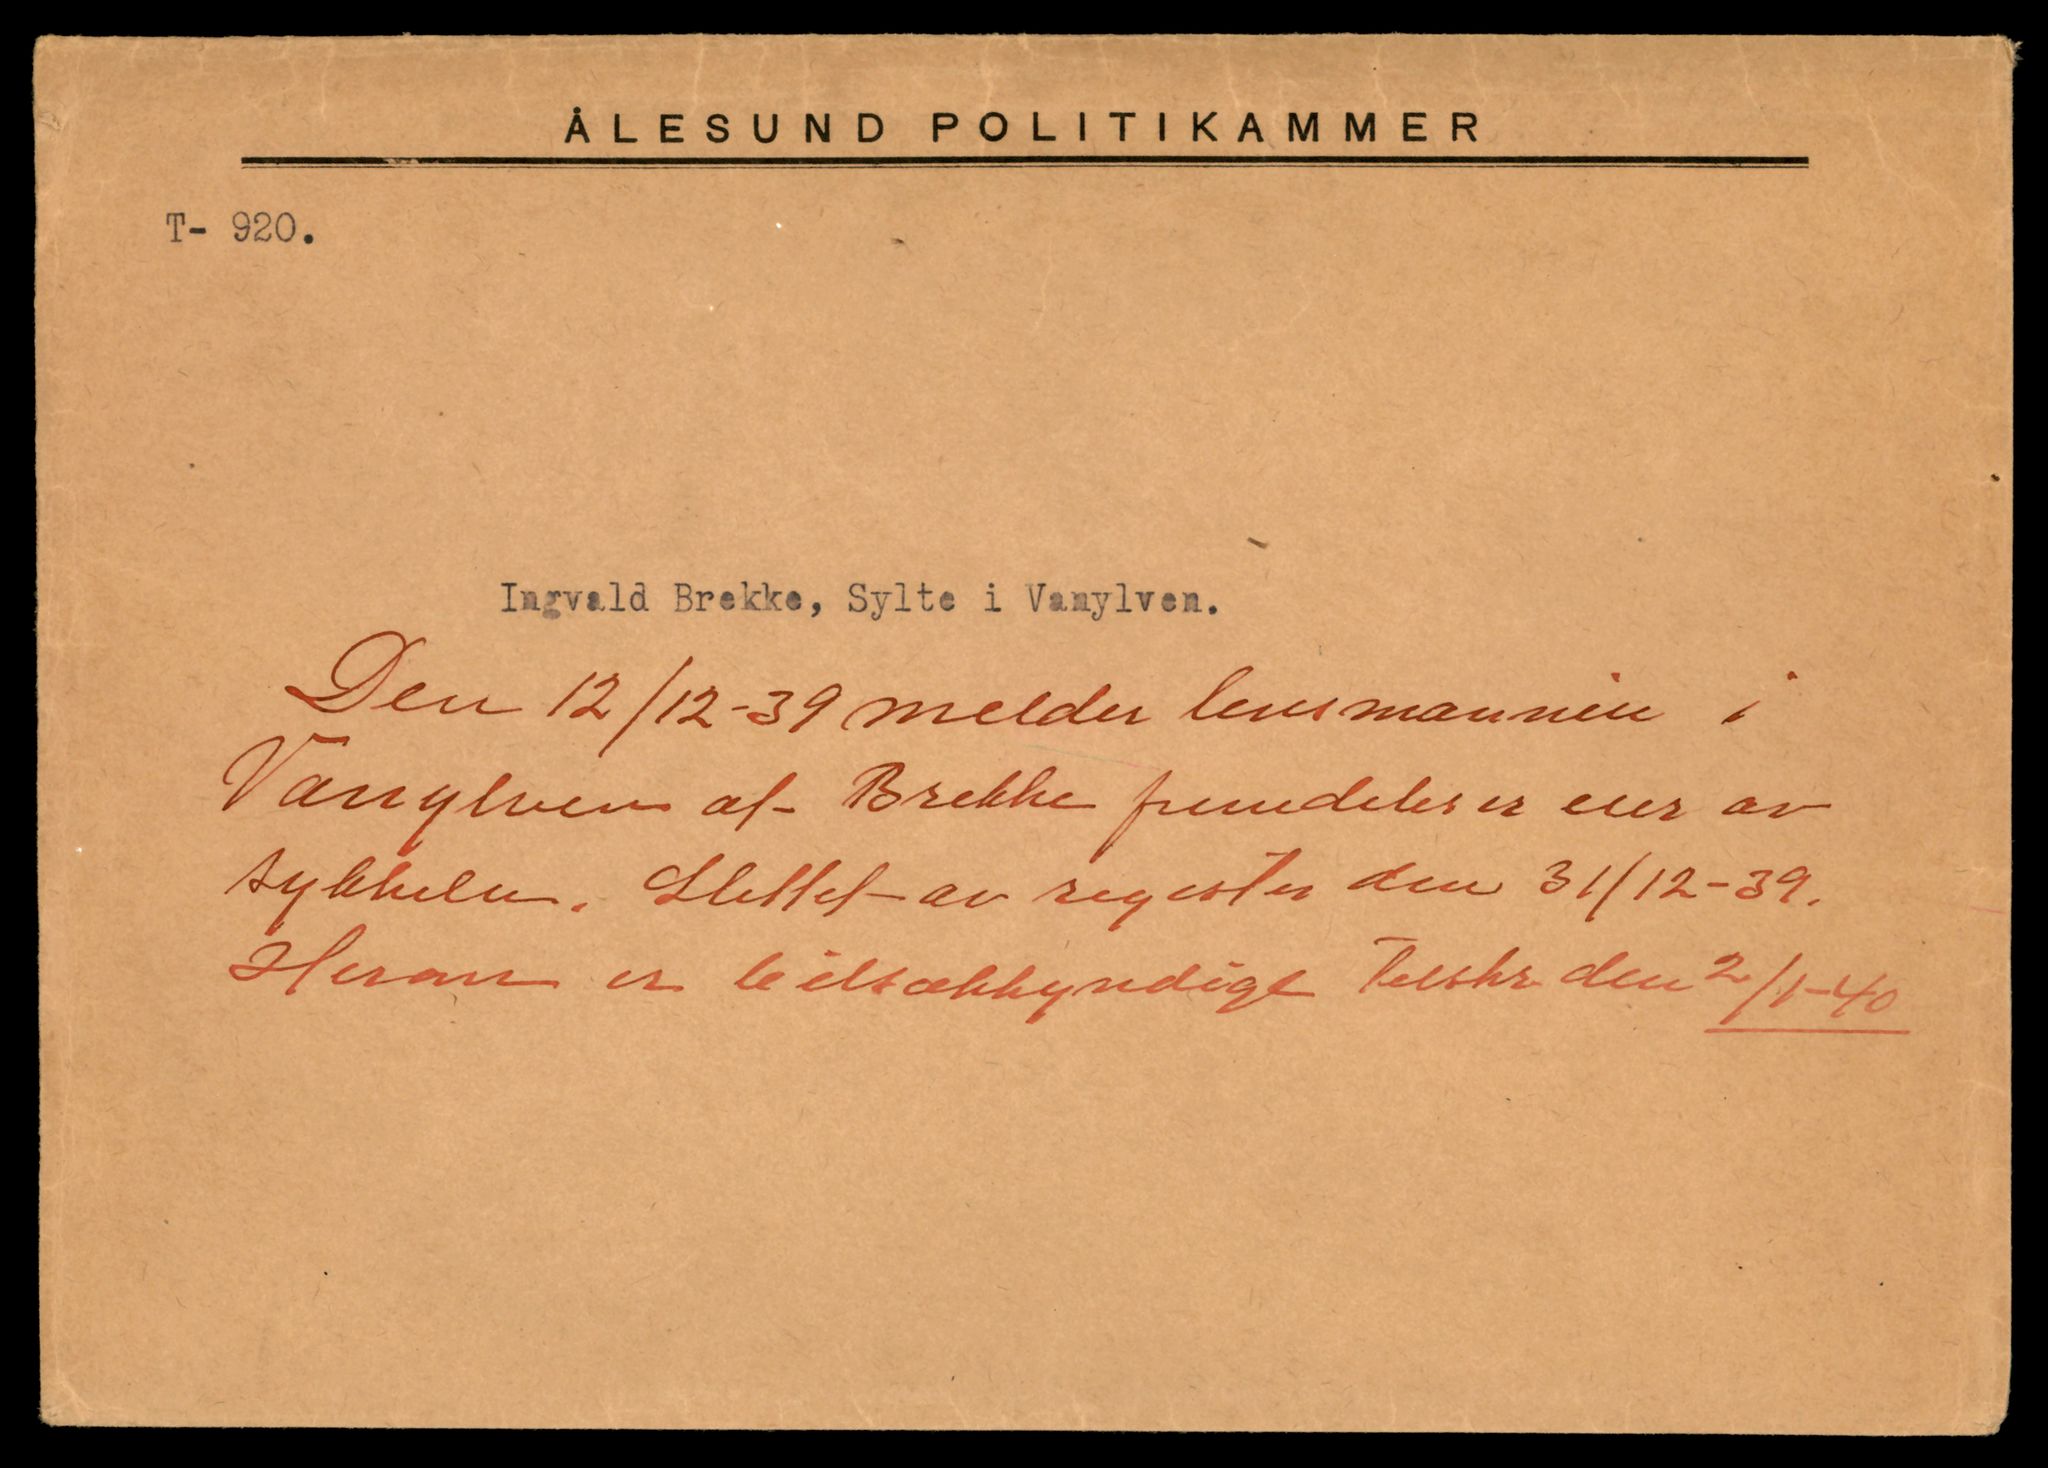 ÅLESUND POLITIKAMMER
T- 920.
Ingvald Brekke, Sylte i Vanylven.
Den 12/12-39 melder lensmannen i
Vanylven at Brekke fremdeles er eier av
sykkelen. Slettet av register den 31/12-39.
Herom er bilsakkyndige tilskr. den 2/1-40